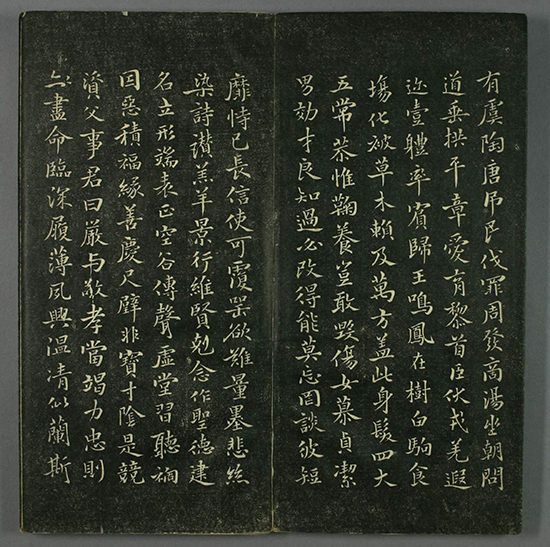 有虞陶唐吊民伐罪周發商湯坐朝問
道垂拱平章愛育黎首臣伏戎羌遐
迩壹體率賓歸王鳴鳳在樹白駒食
場化被草木賴及萬方蓋此身髮四大
五常恭惟鞠養豈敢毀傷女慕貞潔
男効才良知過必改得能莫忘罔談彼短
靡恃己長信使可覆器欲難量墨悲絲
染詩讚羔羊景行維賢剋念作聖德建
名立形端表正空谷傳聲虛堂習聽禍
因惡積福緣善慶尺璧非寶寸陰是競
資父事君曰嚴与敬孝當竭力忠則
盡命臨深履薄夙興温凊似蘭斯